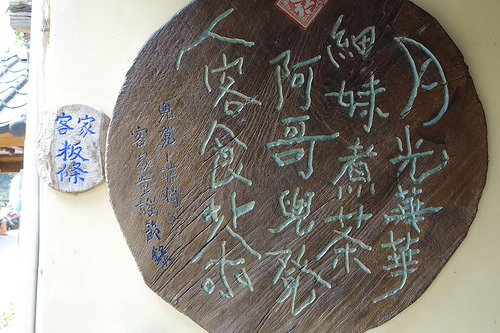 月光華華
細妹煮茶
阿哥兜凳
人客食
客家童謠節錄
客家
板條